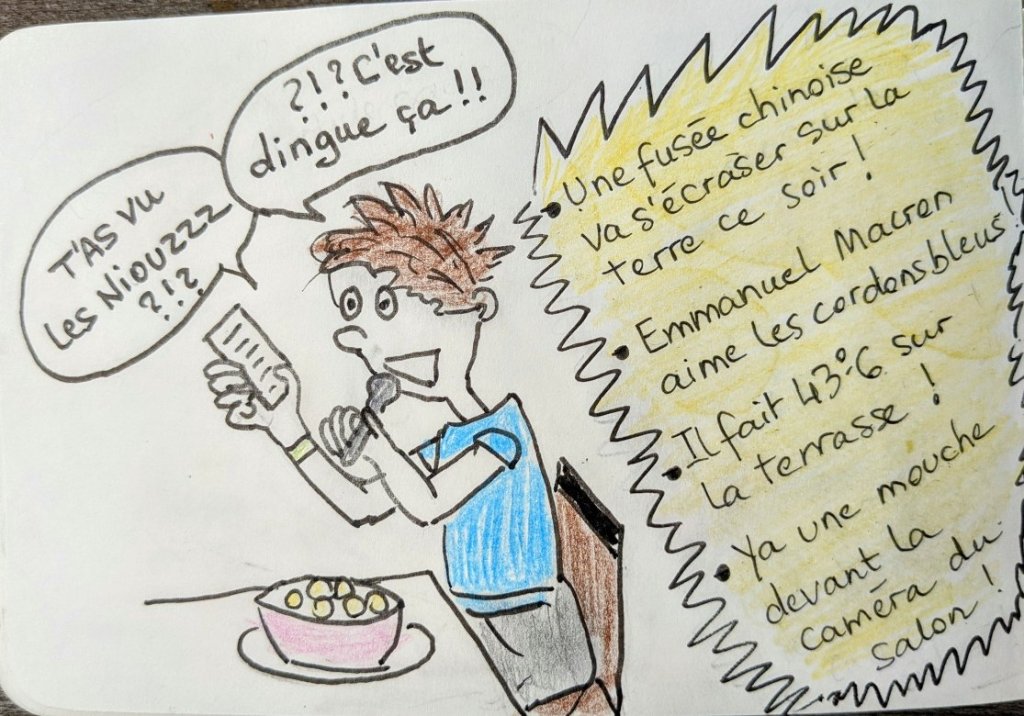 ?!? C'est
dingue ça !!
T'AS VU
les Niouzzz
?!?
• Une fusée chinoise
va s'écraser sur la
terre ce soir !
• Emmanuel Macron
aime les cordonsbleus
• Il fait 43°6 sur
la terrasse !
• Ya une mouche
devant la
caméra du
salon !